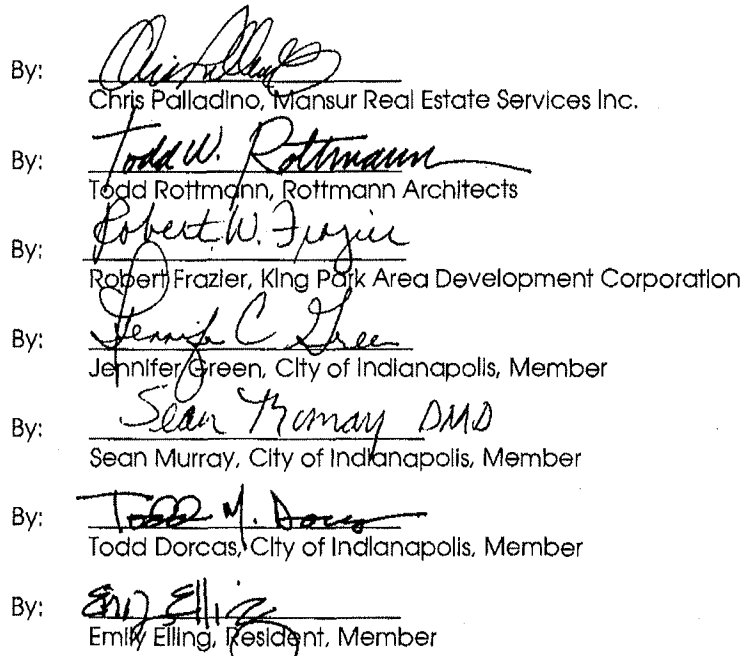 By: Chris Palladino
Chris Palladino, Mansur Real Estate Services Inc.
By: Todd W. Rottmann
Todd Rottmann, Rottmann Architects
By: Robert W. Frazier
Robert Frazier, King Park Area Development Corporation
By: Jennifer C Green
Jennifer Green, City of Indianapolis, Member
By: Sean DMD
Sean Murray, City of Indianapolis, Member
By: Todd M. Dorcas
Todd Dorcas, City of Indianapolis, Member
By: Emily Elling
Emily Elling, Resident, Member